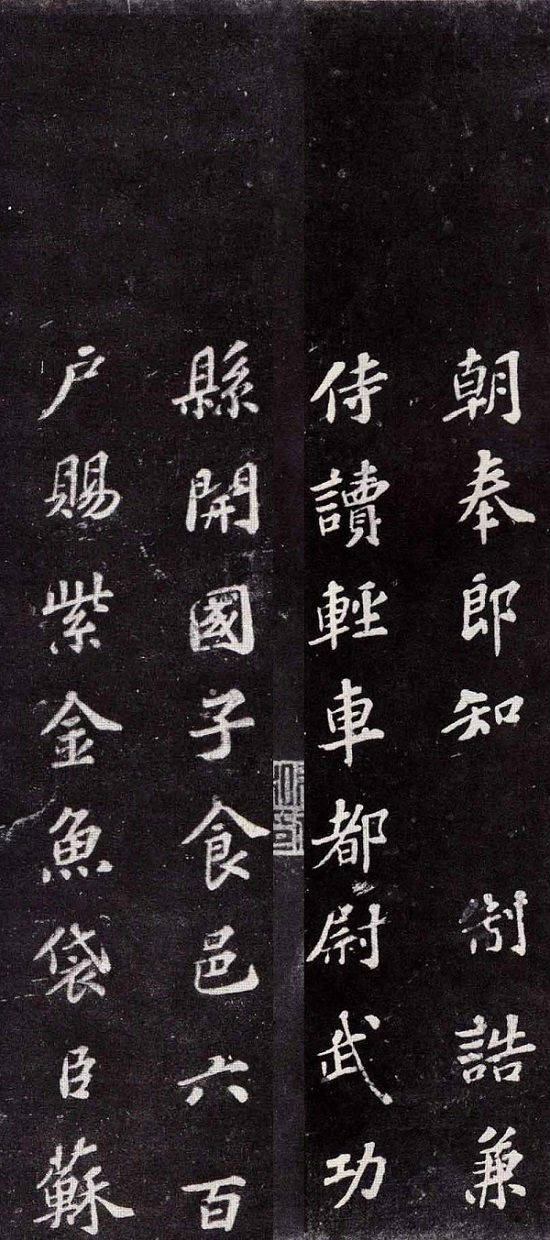 朝奉郎知 制誥兼
侍讀輕車都尉武功
縣開國子食邑六百
户賜紫金魚袋臣蘇